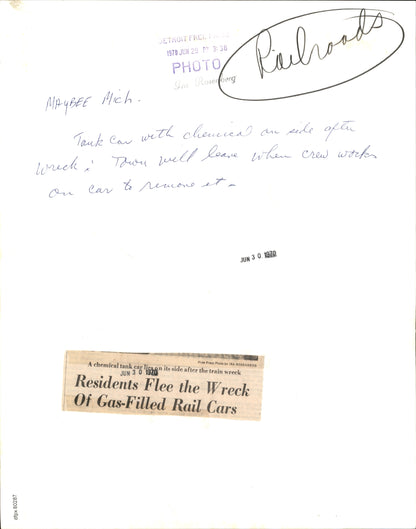 DETROIT FREE
1970 JUN 29 PM 3:36
PHOTO
Railroads
MAYBEE Mich.
Tank car with chemical on side after
wreck. Town will leave when crew works
on car to remove it.
JUN 30 1970
Free Press Photo by IRA ROSENBERG
A chemical tank car lies on its side after the train wreck
JUN 30 1970
Residents Flee the Wreck
Of Gas-Filled Rail Cars
dfpx.60287